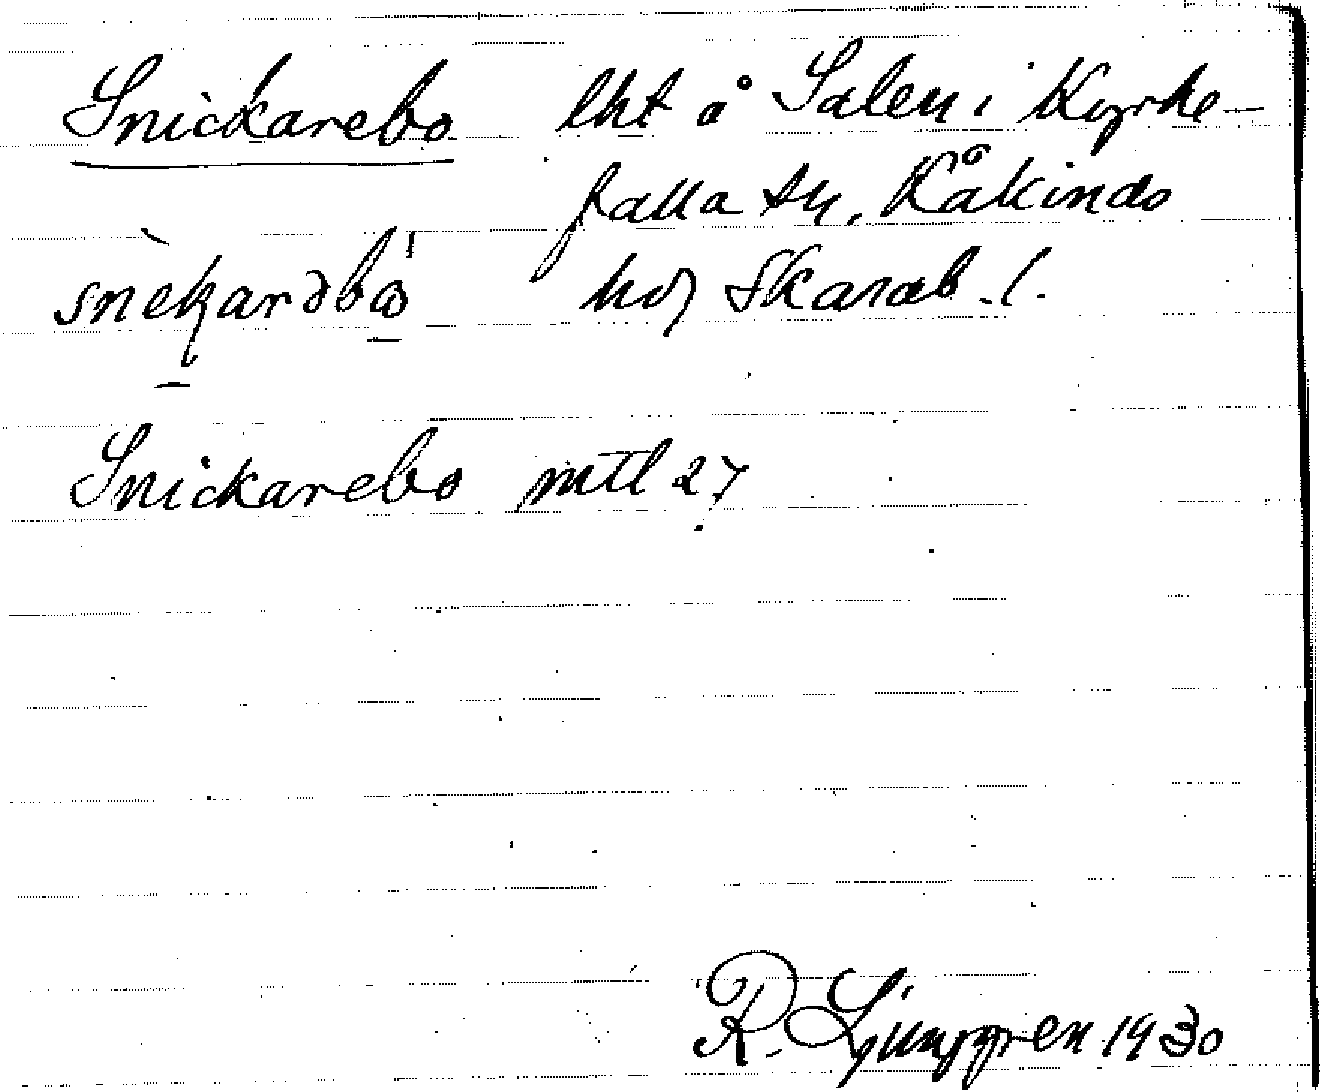 Snickarebo lht å Salen i Kyrke-
falla sn, Kåkinds
snekarəbω hd Skarab. l.
Snickarebo mtl 27
R. Ljunggren 1930